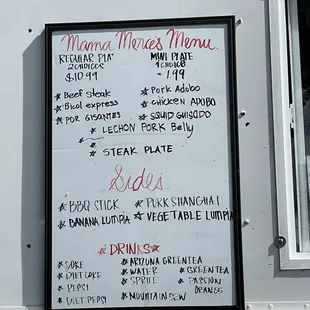 Mama Merce's Menu
REGULAR PLA MINI PLATE
2 CHOICES 1 CHOICE
$10.99 1.99
★ Beef steak ★ Pork Adobo
★ Bicol express ★ chicken ADOBO
★ POR GISANTES ★ SQUID GUISADO
★ LECHON PORK Belly
★ STEAK PLATE
Sides
★ BBQ STICK ★ PORK SHANGHAI
★ BANANA LUMPIA ★ VEGETABLE LUMPIA
★ DRINKS ★
★ COKE ★ ARIZONA GREEN TEA
★ DIET COKE ★ WATER ★ GREEN TEA
★ PEPSI ★ SPRITE ★ PASSION
ORANGE
★ DIET PEPSI ★ MOUNTAIN DEW